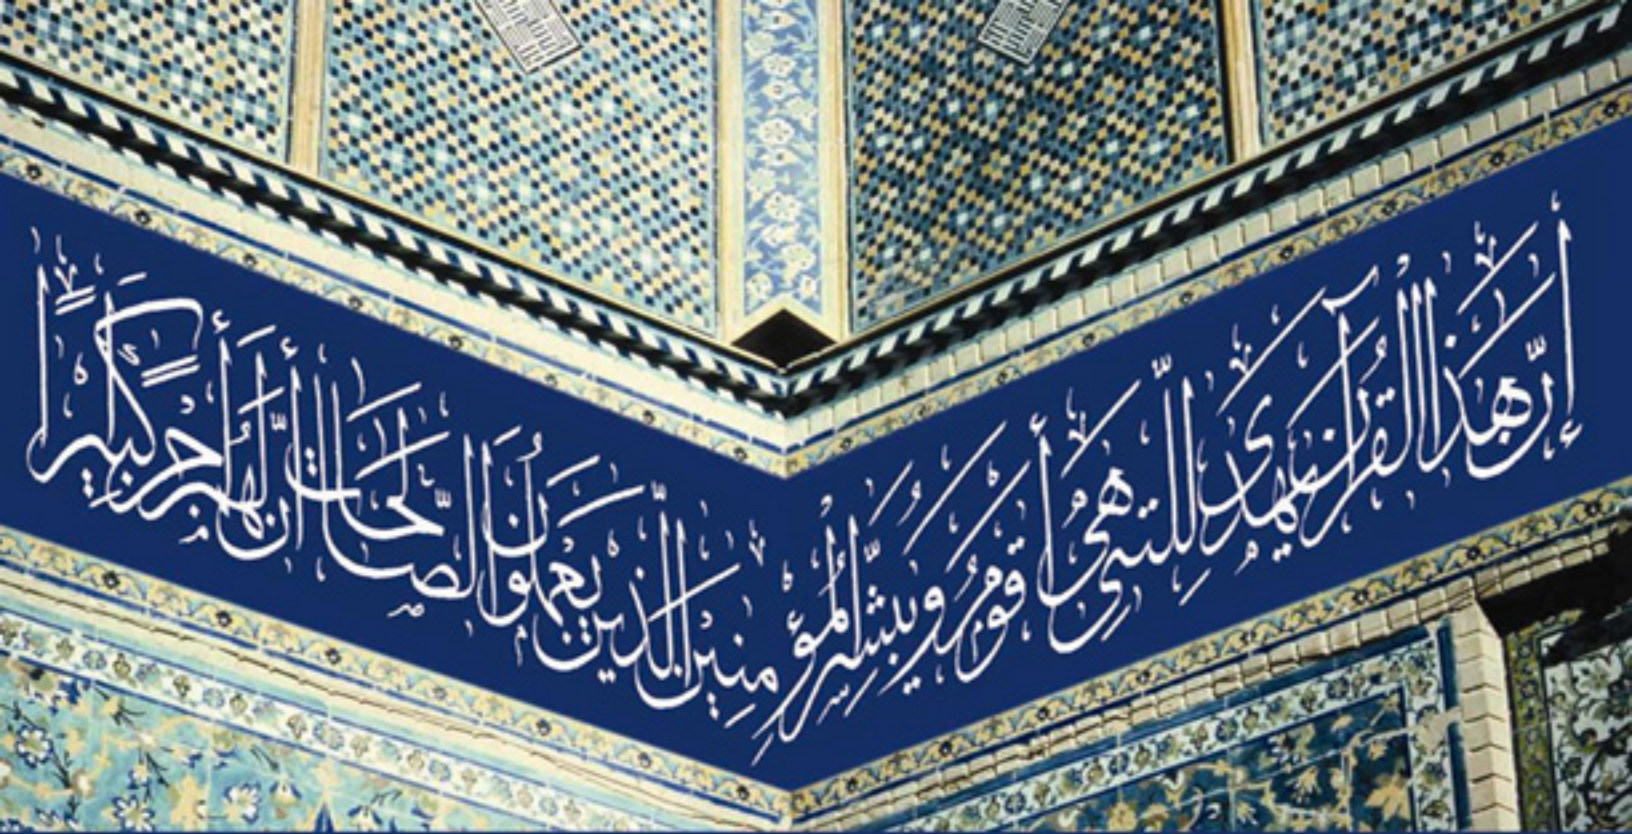 إِنَّ هَذَا الْقُرْآنَ يَهْدِي لِلَّتِي هِيَ أَقْوَمُ وَيُبَشِّرُ الْمُؤْمِنِينَ الَّذِينَ يَعْمَلُونَ الصَّالِحَاتِ أَنَّ لَهُمْ أَجْرًا كَبِيرًا